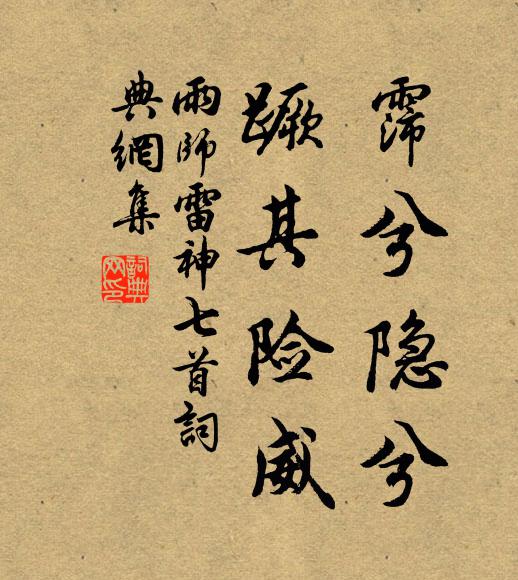 霈兮隐兮
蹶其险威
雨師雷神七首詞
典網集
詞典
网印